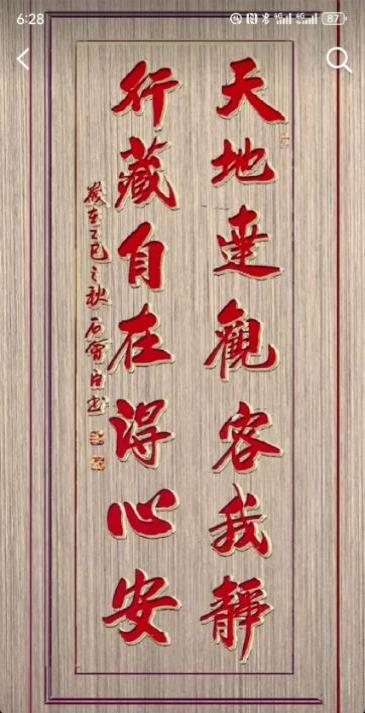 6:28
87
天地達觀容我靜
行藏自在得心安
歲在乙巳之秋石